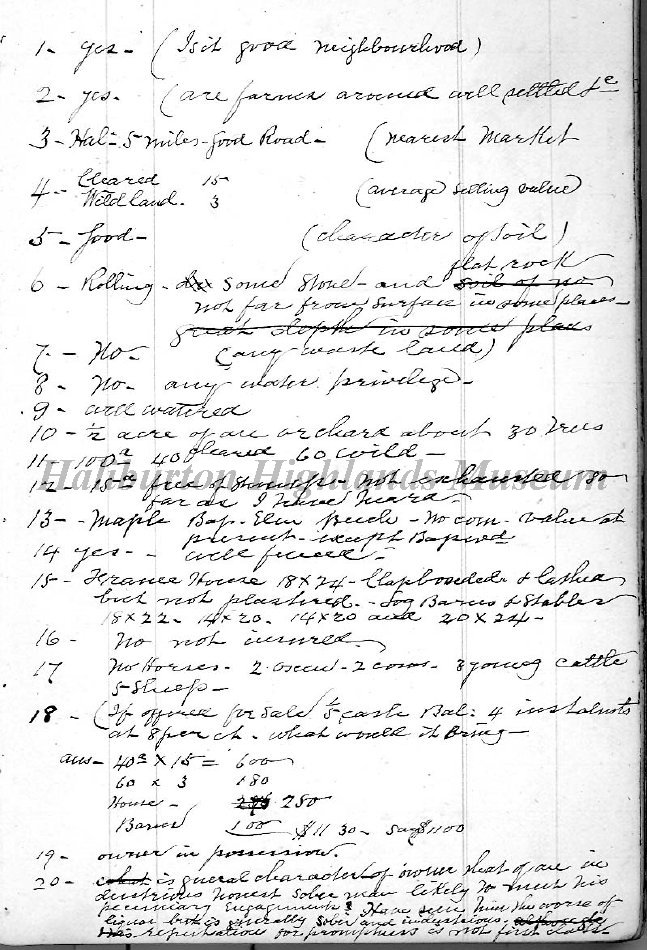 1 - yes - (Is it good neighbourhood)
2 - yes - (are farms around well settled &c
3 - Hal - 5 miles - Good Road - (nearest Market
4 - Cleared 15
Wild land - 3 (average selling value)
5 - Good - (character of soil)
6 - Rolling - some stone - and soil of no flat rock
not far from surface in some places -
great depth in some places
7 - No - (any waste land)
8 - No - any water privilege -
9 - well watered
10 - ½ acre of orchard about 30 trees
11 - 100a 40 cleared 60 wild -
Haliburton Highlands Museum
12 - 15 - free of - not exhausted so
far as I have heard -
13 - Maple Bap - Elm Beech - No com - value at
present - except Bapwd
14 yes - well fenced -
15 - Frame House 18x24 - Clapboarded & lathed
but not plastered - Log Barns & Stables
18x22 - 14x20. 14x20 and 20x24 -
16 - No not insured
17 No Horses - 2 oxen - 2 cows - 3 young cattle
5 Sheep -
18 - (If offered for sale ⅕ cash Bal: 4 instalmts
at 8 per ct. what would it bring -
ans - 40a x 15 = 600
60 x 3 180
House - 250
Barns 100 $1130 - say $1100
19 - owner in possession.
20 - what is general character of owner is he an in
dustrious honest sober man likely to meet his
pecuniary engagements? Have seen him the worse of
liquor but is generally sober and industrious,
his reputation for promptness is not first class -